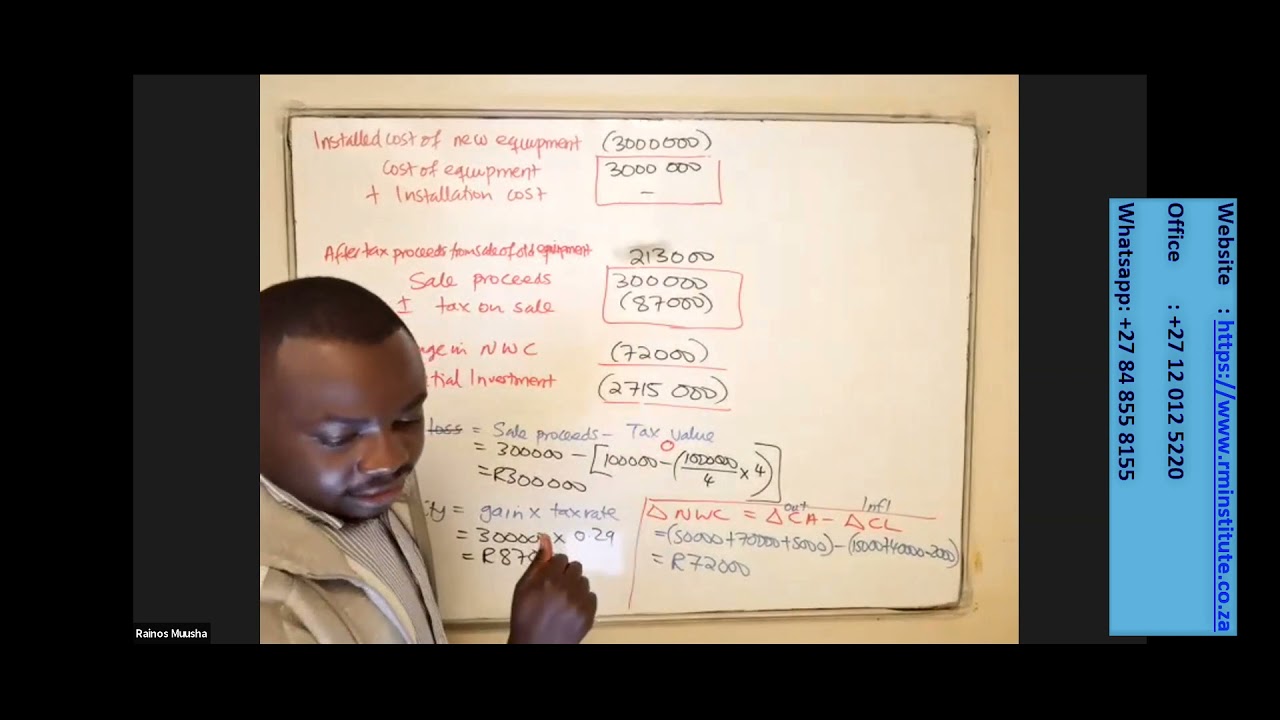 Installed cost of new equipment (3000000)
Cost of equipment 3000 000
+ Installation cost -
After tax proceeds from sale of old equipment 213000
Sale proceeds 300000
± tax on sale (87000)
in NWC (72000)
Investment (2715 000)
loss = Sale proceeds - Tax value
= 300000 - [100000 - (1000000/4 x 4)] 0
= R300000
= gain x tax rate
= 300000 x 0.29
= R87
out Infl
Δ NWC = Δ CA - Δ CL
= (50000+70000+5000) - (15000+40000-2000)
= R72000
Rainos Muusha
Website : https://www.rminstitute.co.za
Office : +27 12 012 5220
Whatsapp: +27 84 855 8155